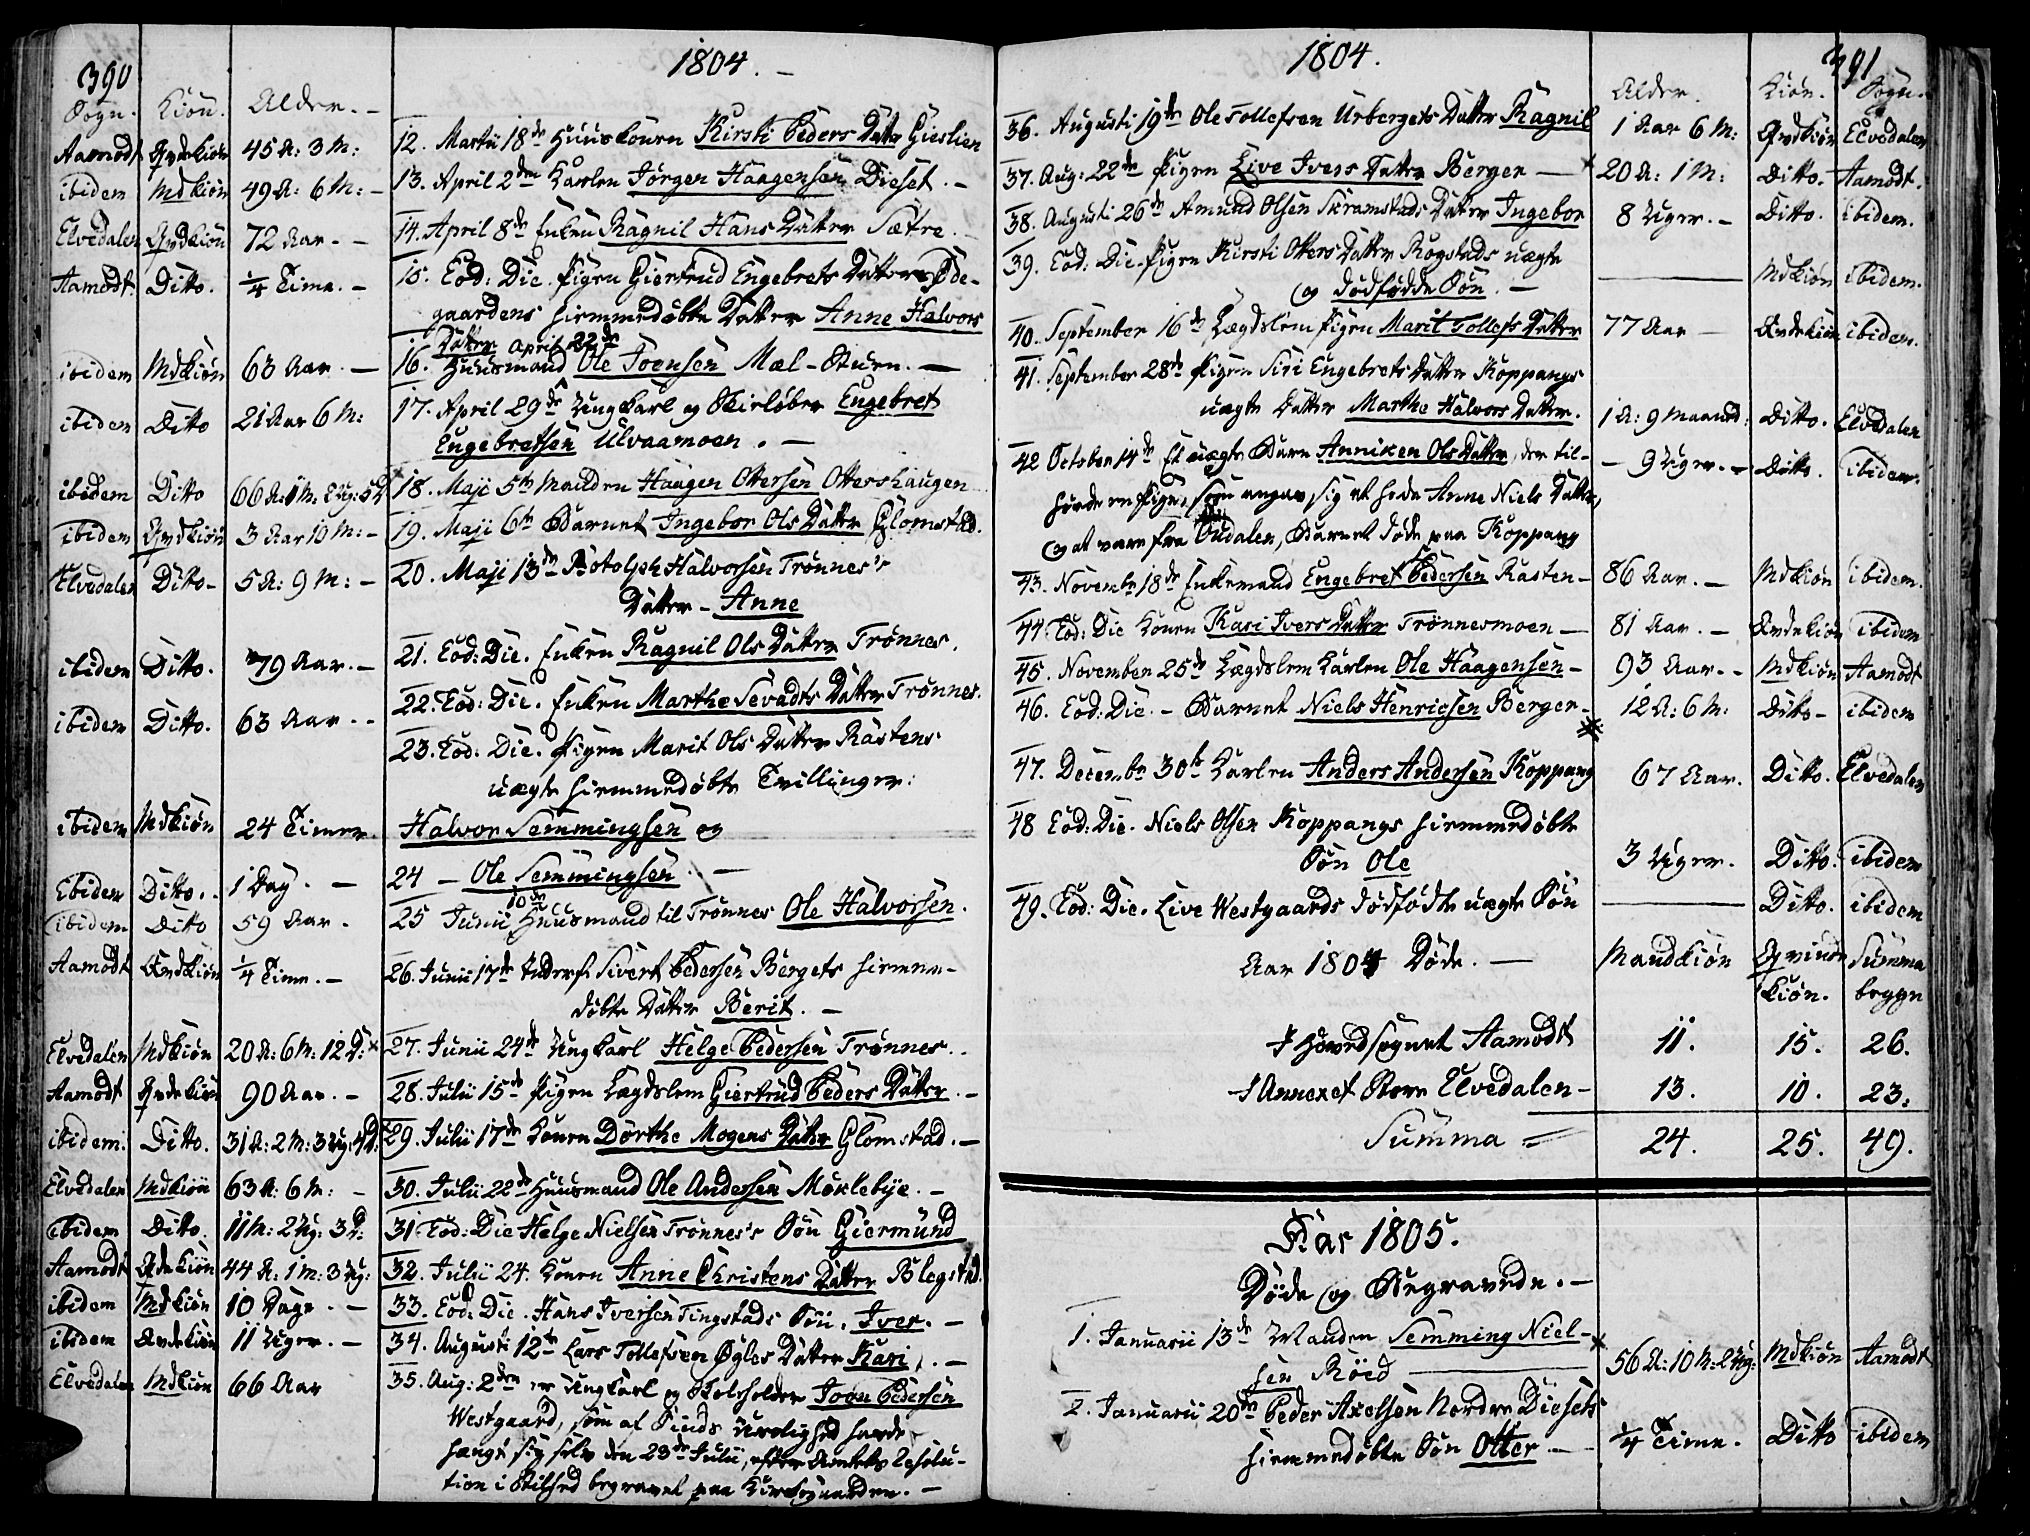 390
1804.
Sogn. Kiøn. Alder.
Aamodt Qvdekiøn 45 A: 3 M: 12. Martii 18de Huuskonen Kirsti Peders Datter Gieslien
ibidem Mdkiøn 49 A: 6 M: 13. April 2den Karlen Jørgen Haagensen Dieset.
Elvedalen Qvdkiøn 72 Aar. 14. April 8de Enken Ragnil Hans Datter Sætre.
Aamodt. Ditto. 1/4 Time. 15. Eod: Die. Pigen Giertrud Engebrets Datter Øde-
gaardens hiemmedøbte Datter Anne Halvors
Datter April 22de
ibidem Mdkiøn 63 Aar. 16. Huusmand Ole Joensen Mæl-Stuen.
ibidem Ditto 21 Aar 6 M: 17. April 29de Ungkarl og Skieløber Engebret
Engebretsen Ulvaamoen.
ibidem Ditto 66 A: 1 M: 2 Ug: 5 D 18. Maji 5te Manden Haagen Ottersen Ottershaugen
ibidem Qvdkiøn 3 Aar 10 M: 19. Maji 6te Barnet Ingebor Ols Datter Glomstad.
Elvedalen Ditto 5 A: 9 M: 20. Maji 13de Botolph Halvorsen Trønnes's
Datter Anne
ibidem Ditto. 79 Aar. 21. Eod: Die. Enken Ragnil Ols Datter Trønnes.
ibidem Ditto. 63 Aar. 22. Eod: Die. Enken Marthe Sevadts Datter Trønnes.
23. Eod: Die. Pigen Marit Ols Datter Rastens
uægte hiemmedøbte Tvillinger:
ibidem Mdkiøn 24 Timer Halvor Semmingsen og
Ebidem Ditto. 1 Dag. 24 Ole Semmingsen.
ibidem Ditto 59 Aar. 25 Junii 10de Huusmand til Trønnes Ole Halvorsen.
Aamodt Qvdkiøn 1/4 Time. 26. Junii 17de Sivert Pedersen Bergets hiemme-
døbte Datter Berit.
Elvedalen Mdkiøn 20 A: 6 M: 12 D: 27. Junii 24de Ungkarl Helge Pedersen Trønnes.
Aamodt Qvdekiøn 90 Aar. 28. Julii 15de Pigen Lægdslem Giertrud Peders Datter.
ibidem: Ditto. 31 A: 2 M: 3 Ug: 4 D: 29. Julii 17de Konen Dorthe Mogens Datter Glomstad.
Elvedalen Mdkiøn 63 A: 6 M: 30. Julii 22de Huusmand Ole Andersen Møklebye.
ibidem Ditto. 11 M: 2 Ug: 3 D: 31 Eod: Die Helge Nielsen Trønnes's Søn Giermund
Aamodt Qvdekiøn 44 A: 1 M: 3 Ug: 32. Julii 24. Konen Anne Christens Datter Blegstad.
ibidem Mdkiøn 10 Dage. 33. Eod: Die. Hans Iversen Tingstads Søn. Iver.
ibidem Qvdekiøn 11 Uger. 34. Augusti 12te Lars Tollefsen Øglos Datter Kari.
Elvedalen Mdkiøn 66 Aar 35. Aug: 2den er Ungkarl og Skoleholder Joen Pedersen
Westgaard, som af Sinds Urolighed havde
hængt sig selv den 23de Julii, efter Amtets Resolu-
tion i Stilhed begravet paa Kirkegaarden.
1804.
391
Alder. Kiøn. Sogn.
36. Augusti 19de Ole Tollefsen Urbergets Datter Ragnil 1 Aar 6 M: Qvdkiøn Elvedalen
37. Aug: 22de Pigen Live Ivers Datter Berger 20 A: 1 M: Ditto. Aamodt.
38. Augusti 26de Amund Olsen Skramstads Datter Ingebor 8 Uger. Ditto. ibidem.
39. Eod: Die. Pigen Kirsti Otters Datter Rogstads uægte
og dødfødde Søn. Mdkiøn ibidem.
40. September 16de Lægdslem Pigen Marit Tollefs Datter 77 Aar Qvdekiøn ibidem.
41. September 28de Pigen Siri Engebrets Datter Koppangs
uægte Datter Marthe Halvors Datter. 1 A: 9 Maaned: Ditto. Elvedalen
42 October 14de Et uægte Barn Anniken Ols Datter, der til- 9 Uger. Ditto. ibidem.
hørde en Pige, som angav sig at hede Anne Niels Datter,
og at være fra Oudalen, Barnet døde paa Koppang
43. Novembr 18de Enkemand Engebret Pedersen Rasten 86 Aar. Mdkiøn ibidem.
44 Eod: Die Konen Kari Ivers Datter Trønnesmoen 81 Aar. Qvdekiøn ibidem
45. November 25de Lægdslem Karlen Ole Haagensen 93 Aar Mdkiøn Aamodt
46. Eod: Die. Barnet Niels Henricsen Berger 12 A: 6 M: Ditto ibidem
47. Decembr 30te Karlen Anders Andersen Koppang 67 Aar. Ditto. Elvedalen
48 Eod: Die. Niels Olsen Koppangs hiemmedøbte
Søn Ole 3 Uger. Ditto: ibidem
49. Eod: Die. Live Westgaards dødfødte uægte Søn Ditto. ibidem
Aar 1804 Døde. Mandkiøn Qvindekiøn. Summa begge
I Hovedsognet Aamodt 11. 15. 26.
I Annexet Store Elvedalen 13. 10. 23.
Summa 24. 25. 49.
Aar 1805.
Døde og Begravede.
1. Januarii 13de Manden Semming Niel-
sen Röed 56 A: 10 M: 2 Ug: Mdkiøn Aamodt
2. Januarii 20de Peder Axelsen Nordre Diesets
hiemmedøbte Søn Otter 1/4 Time. Ditto ibidem